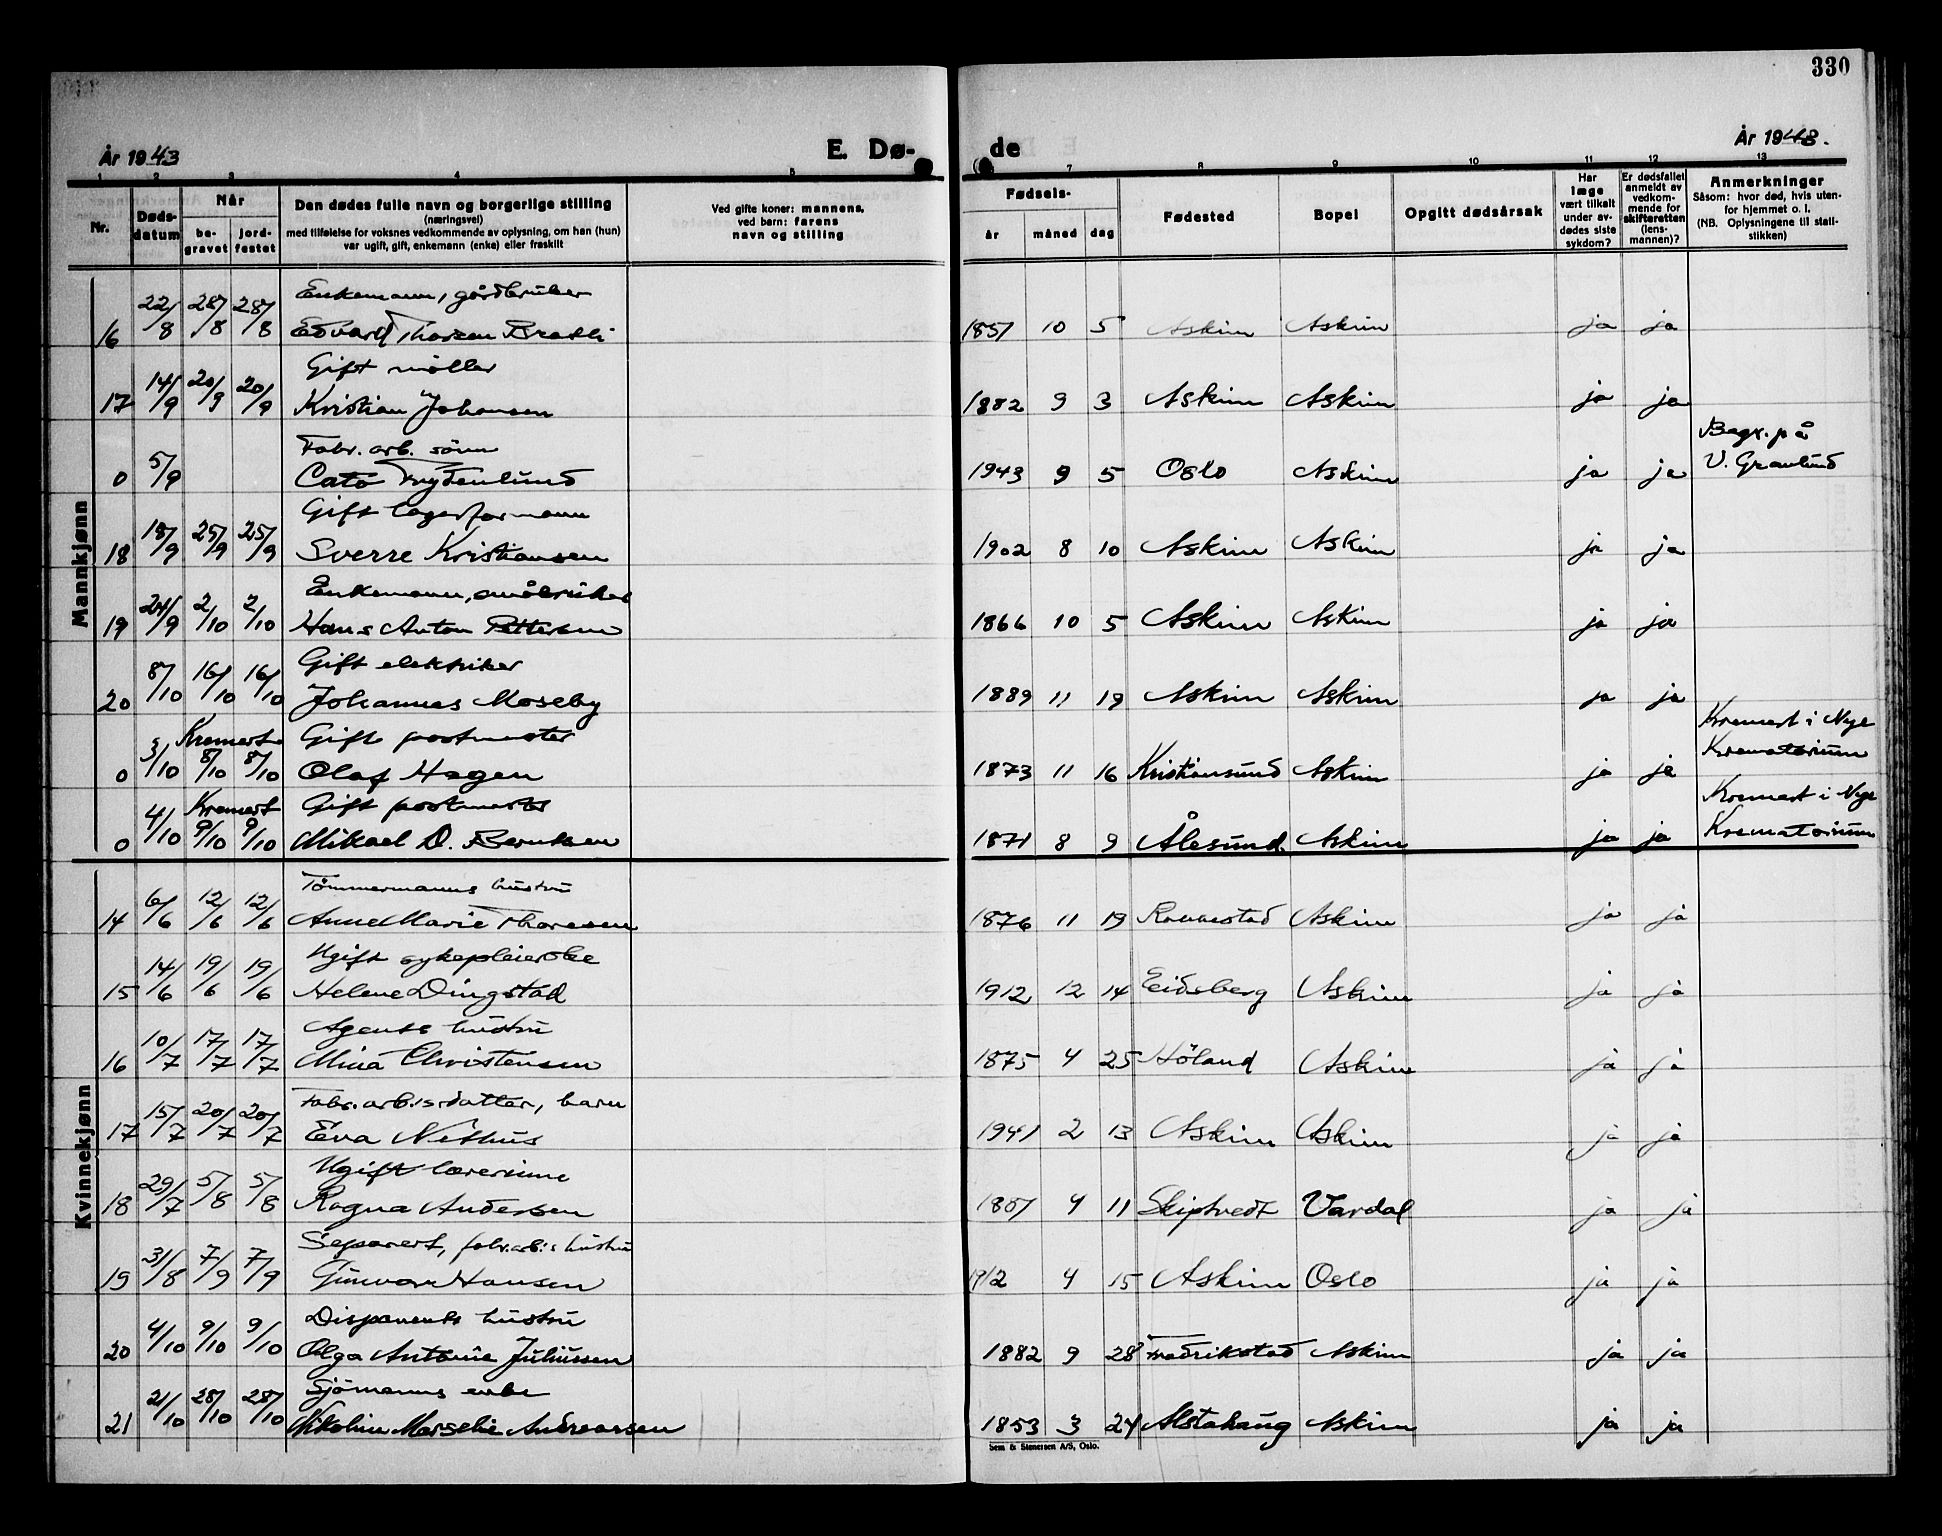 330
År 1943
E. Dø-
de
År 1943.
1 2 3 4 5 7 8 9 10 11 12 13
Nr.
Døds-
datum
Når
be-
gravet
jord-
festet
Den dødes fulle navn og borgerlige stilling
(næringsvei)
med tilføielse for voksnes vedkommende av oplysning, om han (hun)
var ugift, gift, enkemann (enke) eller fraskilt
Ved gifte koner: mannens,
ved barn: farens
navn og stilling
Fødsels-
år måned dag
Fødested
Bopel
Opgitt dødsårsak
Har
læge
vært tilkalt
under av-
dødes siste
sykdom?
Er dødsfallet
anmeldt av
vedkom-
mende for
skifteretten
(lens-
mannen)?
Anmerkninger
Såsom: hvor død, hvis uten-
for hjemmet o. l.
(NB. Oplysningene til stati-
stikken)
Mannkjønn
Enkemann, gårdbruker
16 22/8 28/8 28/8 Edvard Thorsen Bratli 1857 10 5 Askim Askim ja ja
Gift møller
17 14/9 20/9 20/9 Kristian Johansen 1882 9 3 Askim Askim ja ja
Fabr. arb. sønn Begr. på
0 5/9 Cato Frydenlund 1943 9 5 Oslo Askim ja ja V. Gravlund
Gift lagerformann
18 18/9 25/9 25/9 Sverre Kristiansen 1902 8 10 Askim Askim ja ja
Enkemann, småbruker
19 24/9 2/10 2/10 Hans Anton Pettersen 1866 10 5 Askim Askim ja ja
Gift elektriker
20 8/10 16/10 16/10 Johannes Moseby 1889 11 19 Askim Askim ja ja
Kremert Gift postmester Kremert i Nye
0 3/10 8/10 8/10 Olaf Hagen 1873 11 16 Kristiansund Askim ja ja Krematorium
Kremert Gift postmester Kremert i Nye
0 4/10 9/10 9/10 Mikael D. Berntsen 1871 8 9 Ålesund Askim ja ja Krematorium
Kvinnekjønn
Tømmermanns hustru
14 6/6 12/6 12/6 Anne Marie Thoresen 1876 11 19 Askim ja ja
Ugift sykepleierske
15 14/6 19/6 19/6 Helene Dingstad 1912 12 14 Eidsberg Askim ja ja
Agents hustru
16 10/7 17/7 17/7 Mina Christensen 1875 4 25 Höland Askim ja ja
Fabr. arb.s datter, barn
17 15/7 20/7 20/7 Eva 1941 2 13 Askim Askim ja ja
Ugift lærerinne
18 29/7 5/8 5/8 Ragna Andersen 4 11 Skiptvedt Vardal ja ja
Separert, fabr.arb.s hustru
19 31/8 7/9 7/9 Gunvor Hansen 1912 4 15 Askim Oslo ja ja
Disponents hustru
20 4/10 9/10 9/10 Olga Antonie Juliussen 1882 9 28 Fredrikstad Askim ja ja
Sjömanns enke
21 21/10 28/10 28/10 Nikoline Marselie Andreassen 1853 3 24 Alstahaug Askim ja ja
Sem & Stenersen A/S, Oslo.